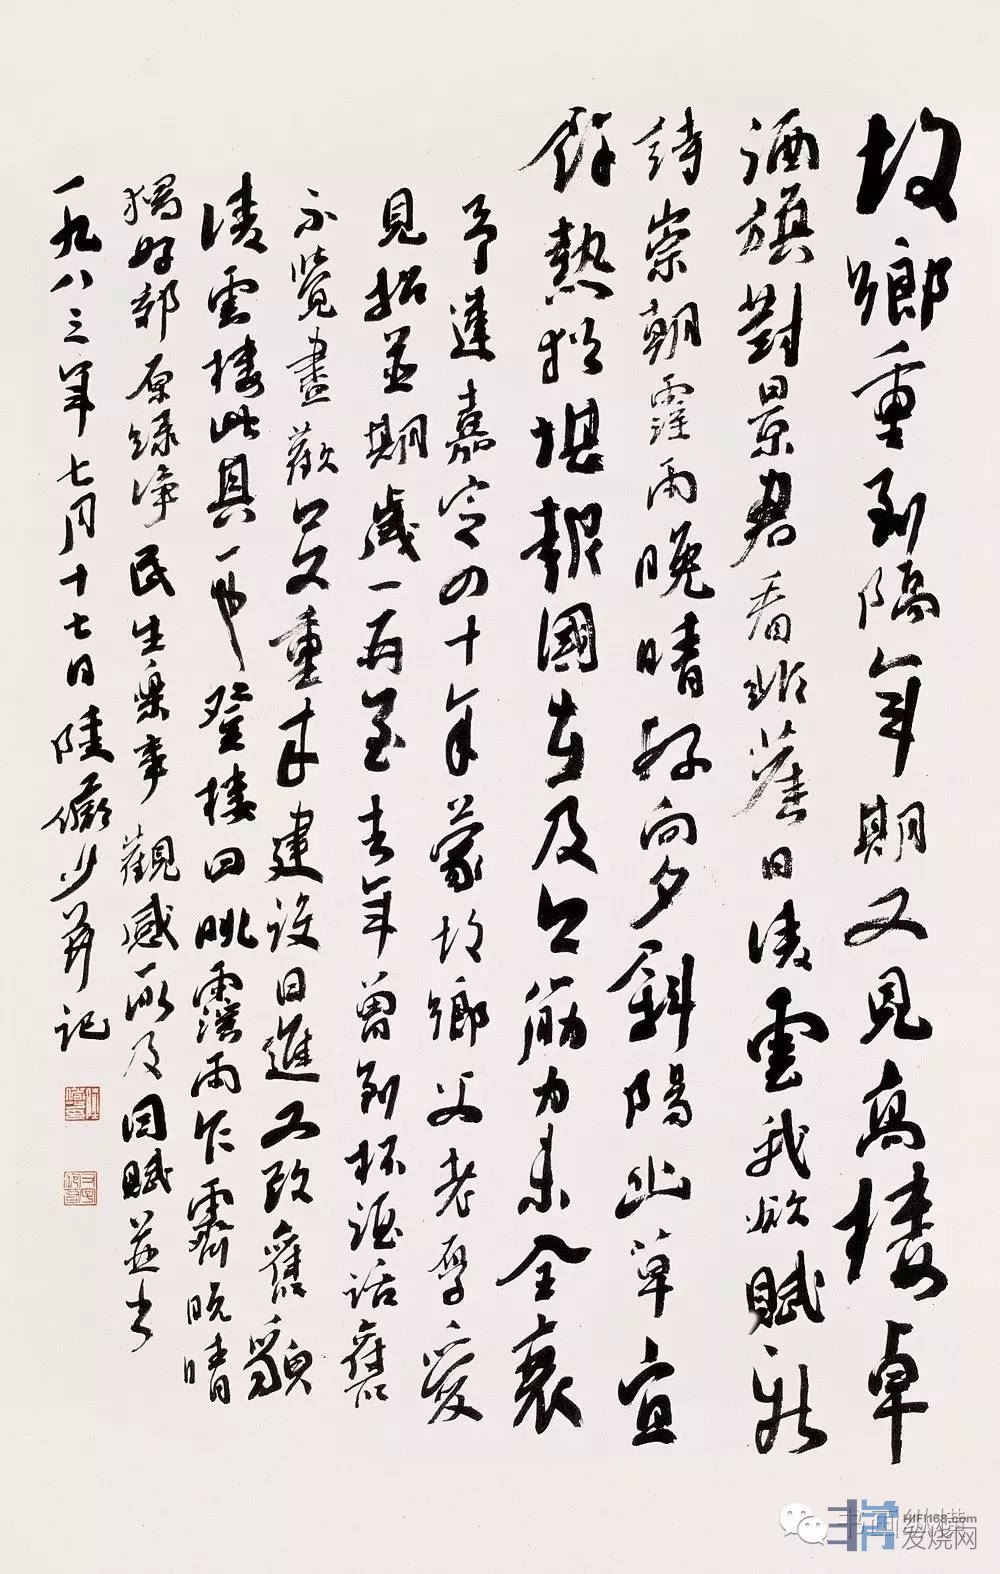 故鄉重到隔年期又見高樓卓
酒旗對景君看非舊日凌雲我欲賦新
詩崇朝霪雨晚晴好向夕斜陽山草宜
餘熱猶堪報國在及今筋力未全衰
予違嘉定四十年蒙故鄉父老厚愛
見招並期歲一再至去年曾到杯酒話舊
不覺盡歡今又重來建設日進又改舊貌
凌雲樓此其一也登樓四眺霪雨乍霽晚晴
獨好郊原綠淨民生樂事觀感所及因賦並書
一九八三年七月十七日陸儼少並記
HIFI168.com
发烧网